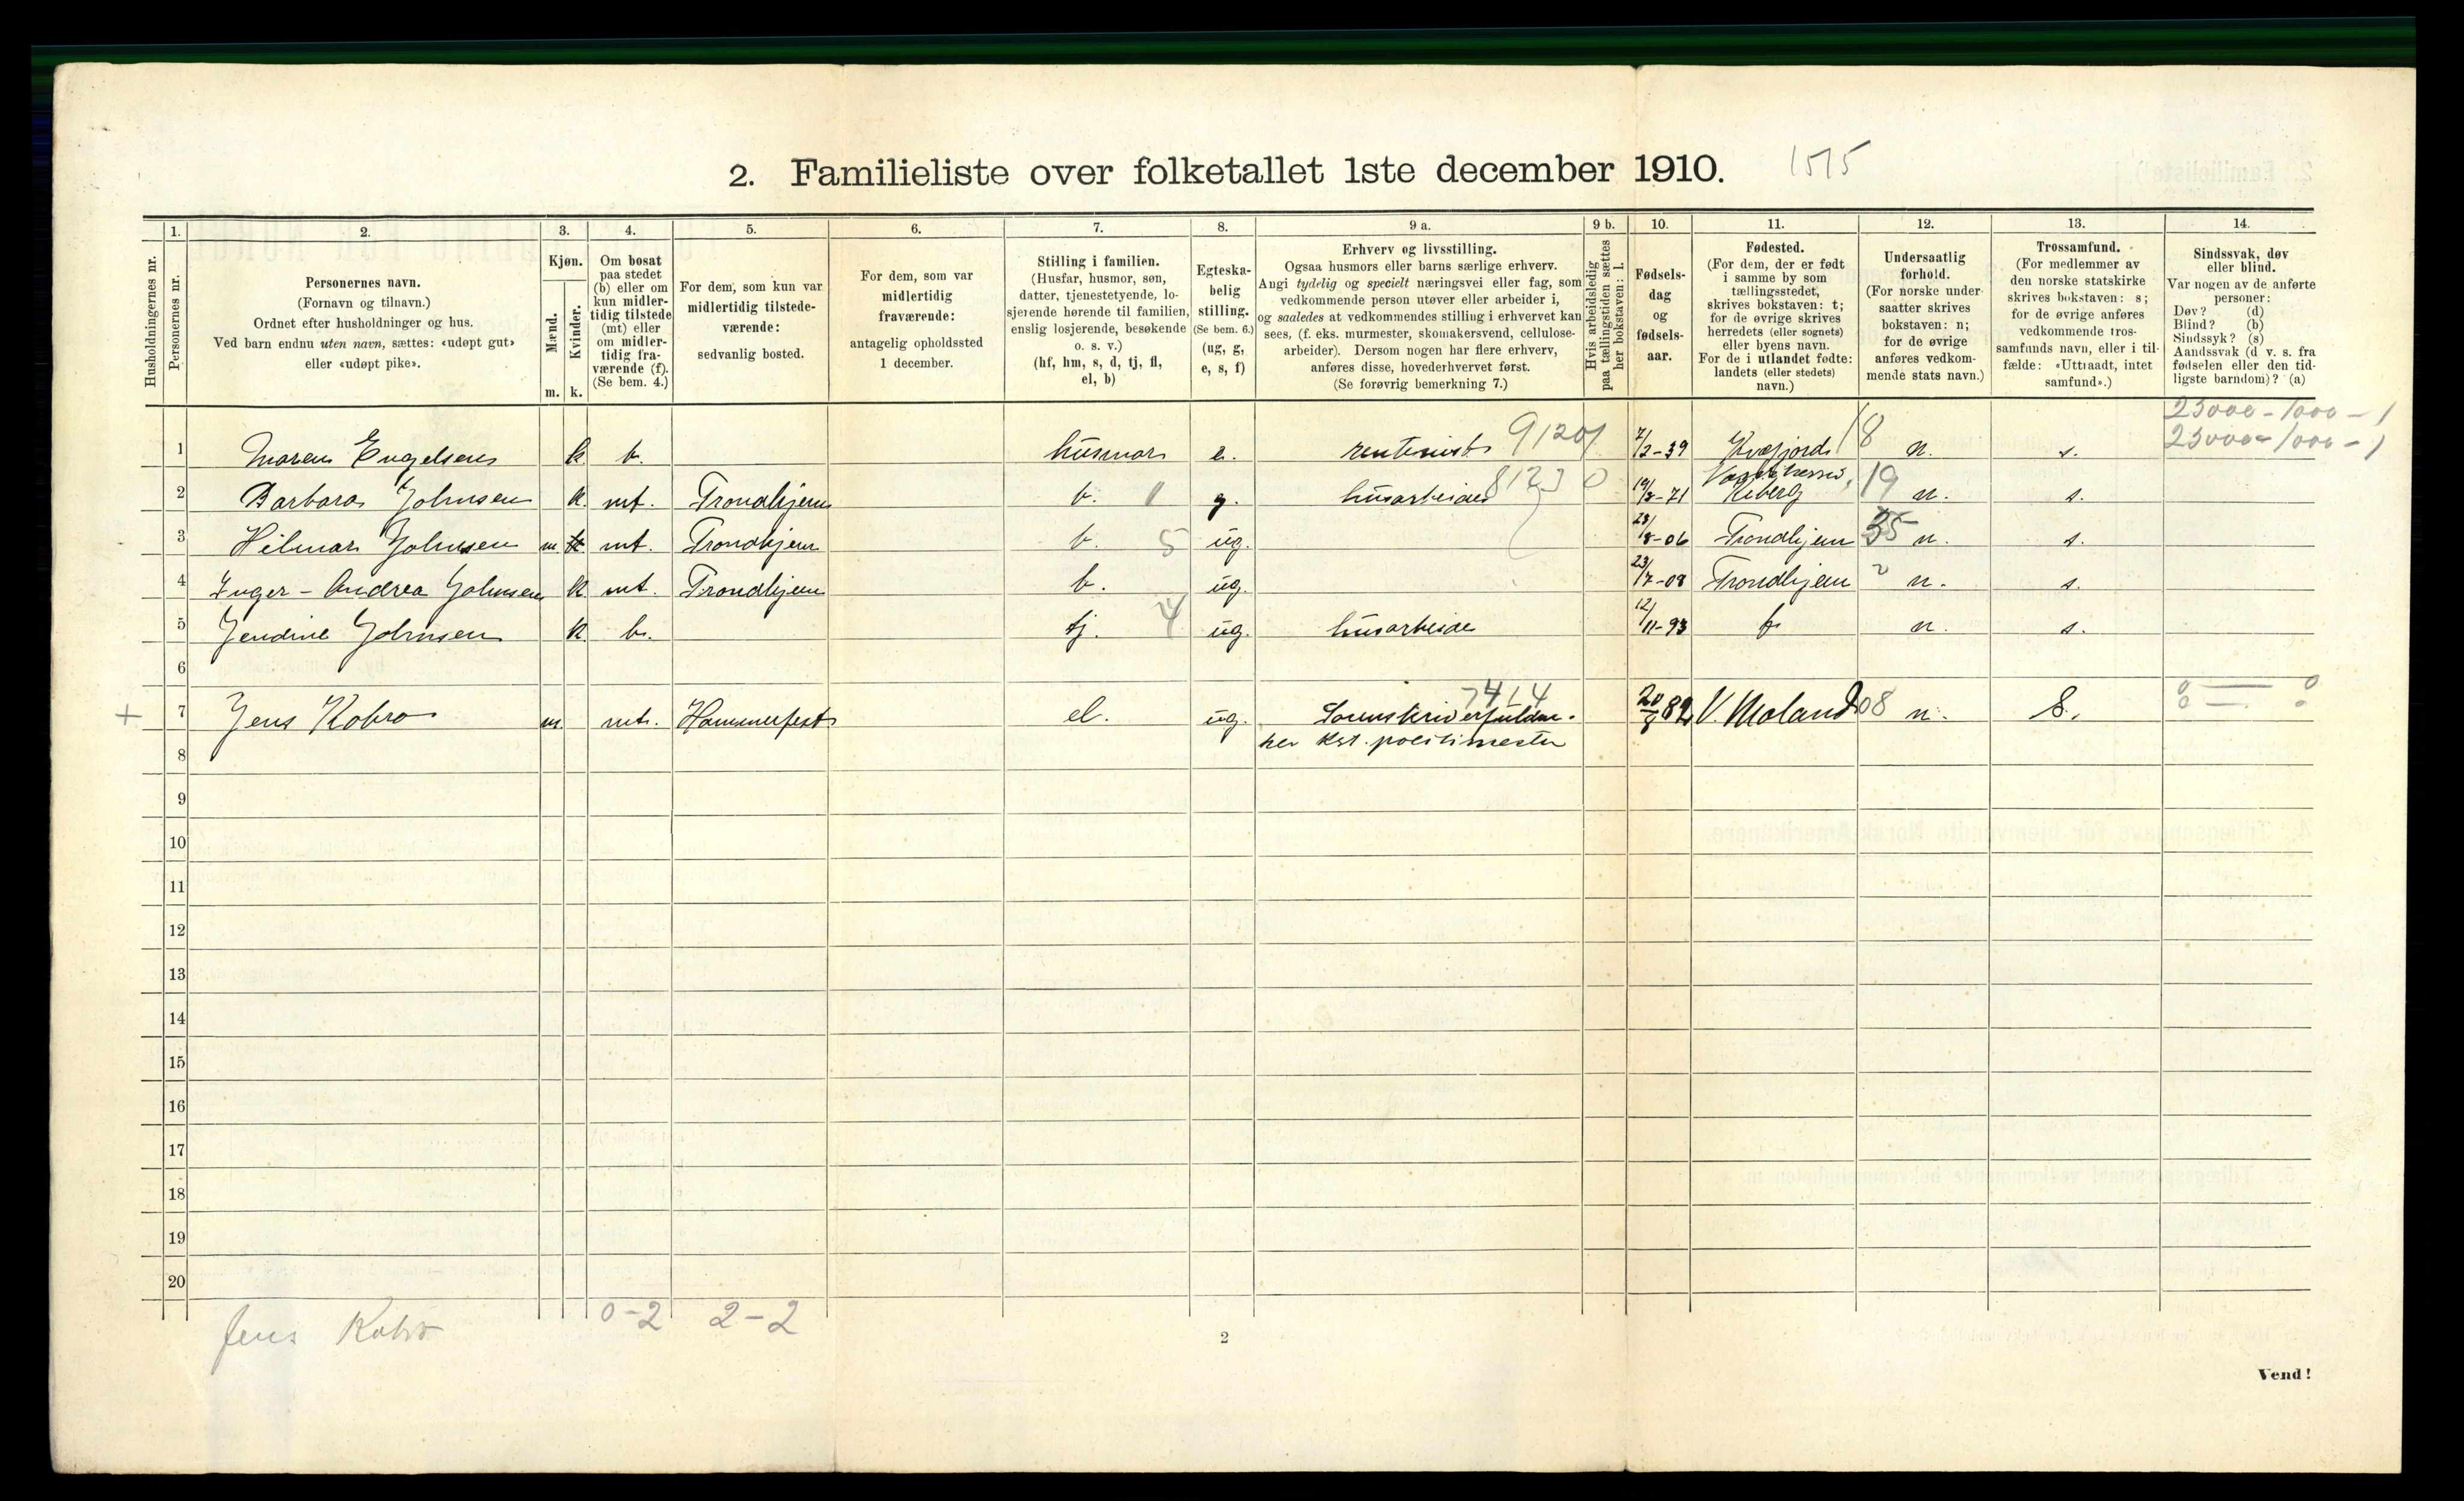 2. Familieliste over folketallet 1ste december 1910. 1515
Husholdningernes nr.
1. Personernes nr.
2. Personernes navn. (Fornavn og tilnavn.) Ordnet efter husholdninger og hus. Ved barn endnu uten navn, sættes: «udøpt gut» eller «udøpt pike».
3. Kjøn. Mænd. m. Kvinder. k.
4. Om bosat paa stedet (b) eller om kun midlertidig tilstede (mt) eller om midlertidig fraværende (f). (Se bem. 4.)
5. For dem, som kun var midlertidig tilstedeværende: sedvanlig bosted.
6. For dem, som var midlertidig fraværende: antagelig opholdssted 1 december.
7. Stilling i familien. (Husfar, husmor, søn, datter, tjenestetyende, losjerende hørende til familien, enslig losjerende, besøkende o. s. v.) (hf, hm, s, d, tj, fl, el, b)
8. Egteskabelig stilling. (Se bem. 6.) (ug, g, e, s, f)
9 a. Erhverv og livsstilling. Ogsaa husmors eller barns særlige erhverv. Angi tydelig og specielt næringsvei eller fag, som vedkommende person utøver eller arbeider i, og saaledes at vedkommendes stilling i erhvervet kan sees, (f. eks. murmester, skomakersvend, cellulosearbeider). Dersom nogen har flere erhverv, anføres disse, hovederhvervet først. (Se forøvrig bemerkning 7.)
9 b. Hvis arbeidsledig paa tællingstiden sættes her bokstaven: l.
10. Fødselsdag og fødselsaar.
11. Fødested. (For dem, der er født i samme by som tællingsstedet, skrives bokstaven: t; for de øvrige skrives herredets (eller sognets) eller byens navn. For de i utlandet fødte: landets (eller stedets) navn.)
12. Undersaatlig forhold. (For norske undersaatter skrives bokstaven: n; for de øvrige anføres vedkommende stats navn.)
13. Trossamfund. (For medlemmer av den norske statskirke skrives bokstaven: s; for de øvrige anføres vedkommende trossamfunds navn, eller i tilfælde: «Uttraadt, intet samfund».)
14. Sindssvak, døv eller blind. Var nogen av de anførte personer: Døv? (d) Blind? (b) Sindssyk? (s) Aandssvak (d. v. s. fra fødselen eller den tidligste barndom)? (a)
23000 - 1000 - 1
1 Maren Engelsen k b. husmor e. rentenist 9120 7/2-39 Kvæfjord 18 n. s. 23000 - 1000 - 1
2 Barbara Johnsen k. mt. Trondhjem b. g. husarbeide 8123 0 19/8-71 Kiberg 19 n. s.
3 Hilmar Johnsen m. mt. Trondhjem b. 5 ug. 23/8-06 Trondhjem 35 n. s.
4 Inger-Andrea Johnsen k. mt. Trondhjem b. ug. 23/7-08 Trondhjem n. s.
5 Jendine Johnsen k. b. tj. 4 ug. husarbeide 12/11-93 t n. s.
6
+ 7 Jens Kobro m. mt. Hammerfest el. ug. Sorenskriverfuldm. 7414 20/8 82 V. Moland 08 n. S.
8 her kst. politimester
9
10
11
12
13
14
15
16
17
18
19
20
Jens Kobro 0-2 2-2
2
Vend!